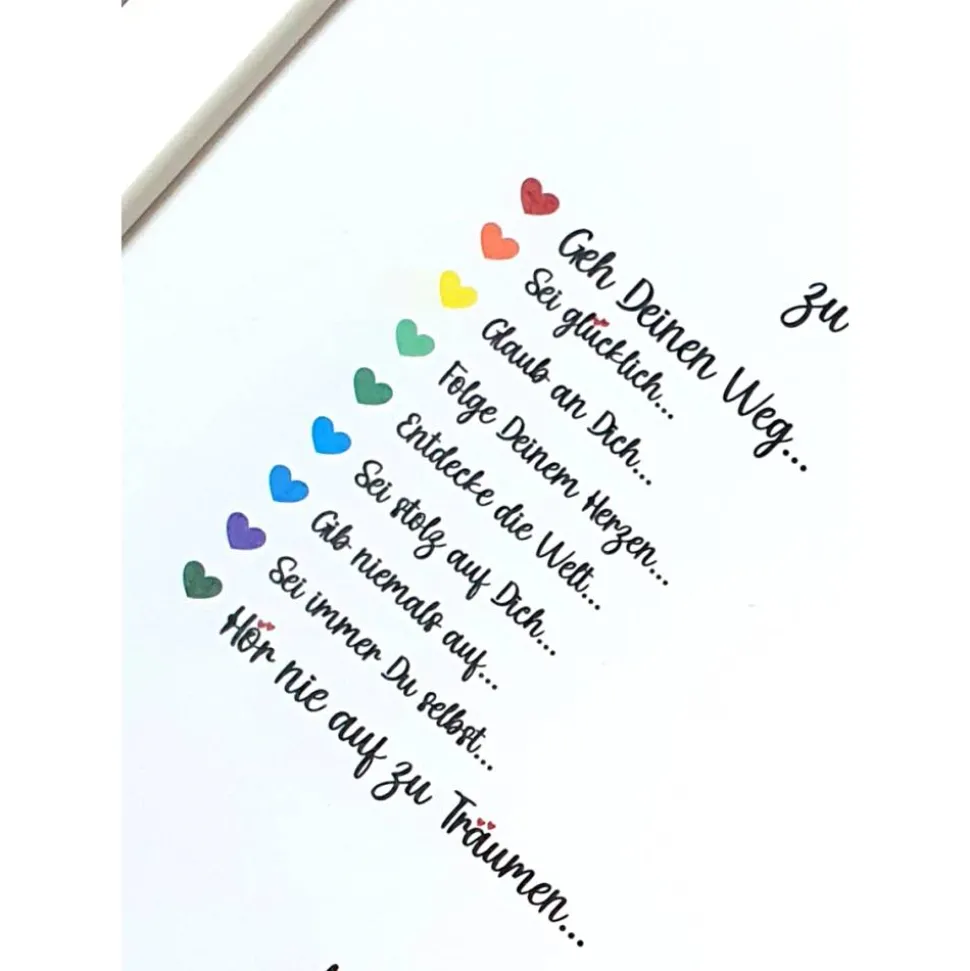 zu
Geh Deinen Weg...
Sei glücklich...
Glaub an Dich...
Folge Deinem Herzen...
Entdecke die Welt...
Sei stolz auf Dich...
Gib niemals auf...
Sei immer Du selbst...
Hör nie auf zu Träumen...